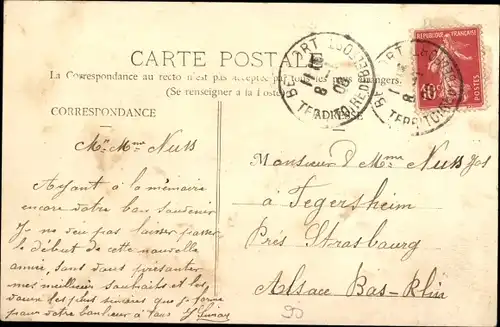 CARTE POSTALE
La Correspondance au recto n'est pas acceptée par tous les pays étrangers.
(Se renseigner à la Poste)
CORRESPONDANCE
ADRESSE
BELFORT
TERRITOIRE DE BELFORT
8
08
RÉPUBLIQUE FRANÇAISE
10c
Mr Mme Nuss
Ayant à la mémoire
encore votre bon souvenir
Je ne veu pas laisser passer
le début de cette nouvelle
année, sans vous présenter
mes meilleur souhaits et les
vœux les plus sincères que je forme
pour votre bonheur à tous
Monsieur & Mme Nuss Jos
à Fegersheim
Prés Strasbourg
Alsace Bas-Rhin